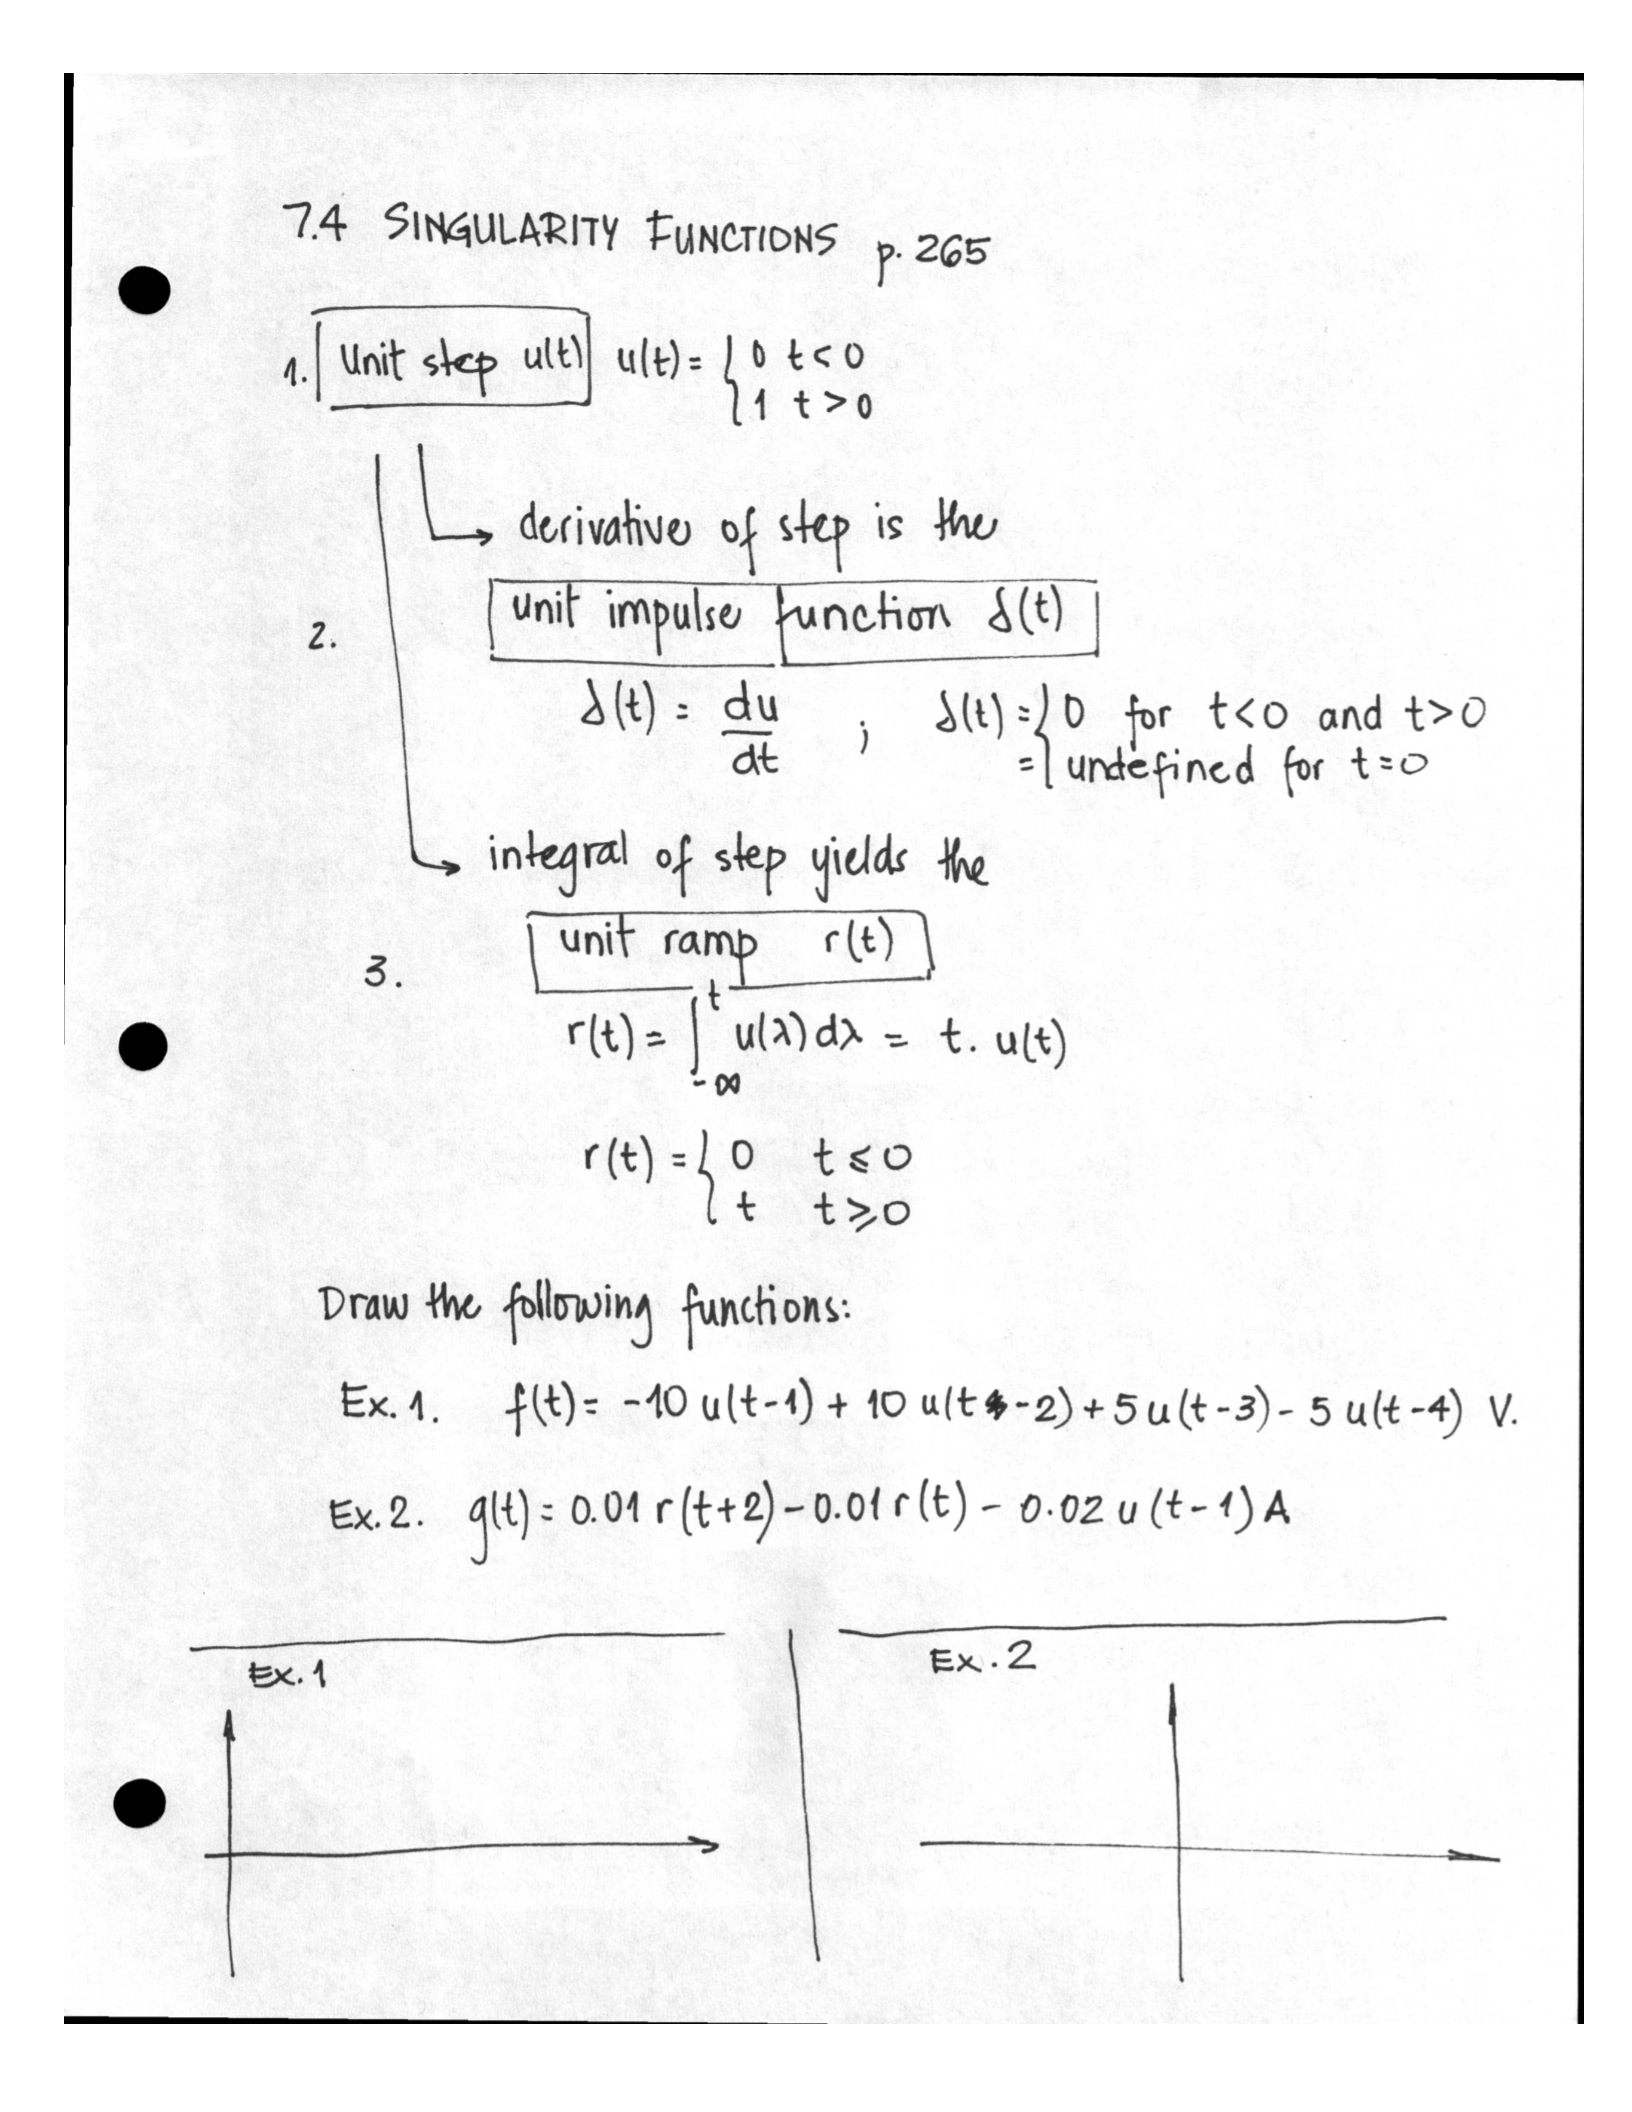 7.4 SINGULARITY FUNCTIONS p. 265
1. Unit step u(t) u(t) = { 0 t < 0
1 t > 0
derivative of step is the
2. unit impulse function δ(t)
δ(t) = du/dt ; δ(t) = { 0 for t<0 and t>0
= undefined for t=0
integral of step yields the
3. unit ramp r(t)
r(t) = ∫_{-∞}^{t} u(λ) dλ = t. u(t)
r(t) = { 0 t ⩽ 0
t t ⩾ 0
Draw the following functions:
Ex. 1. f(t) = -10 u(t-1) + 10 u(t-2) + 5 u(t-3) - 5 u(t-4) V.
Ex. 2. g(t) = 0.01 r(t+2) - 0.01 r(t) - 0.02 u(t-1) A
Ex. 1
Ex. 2